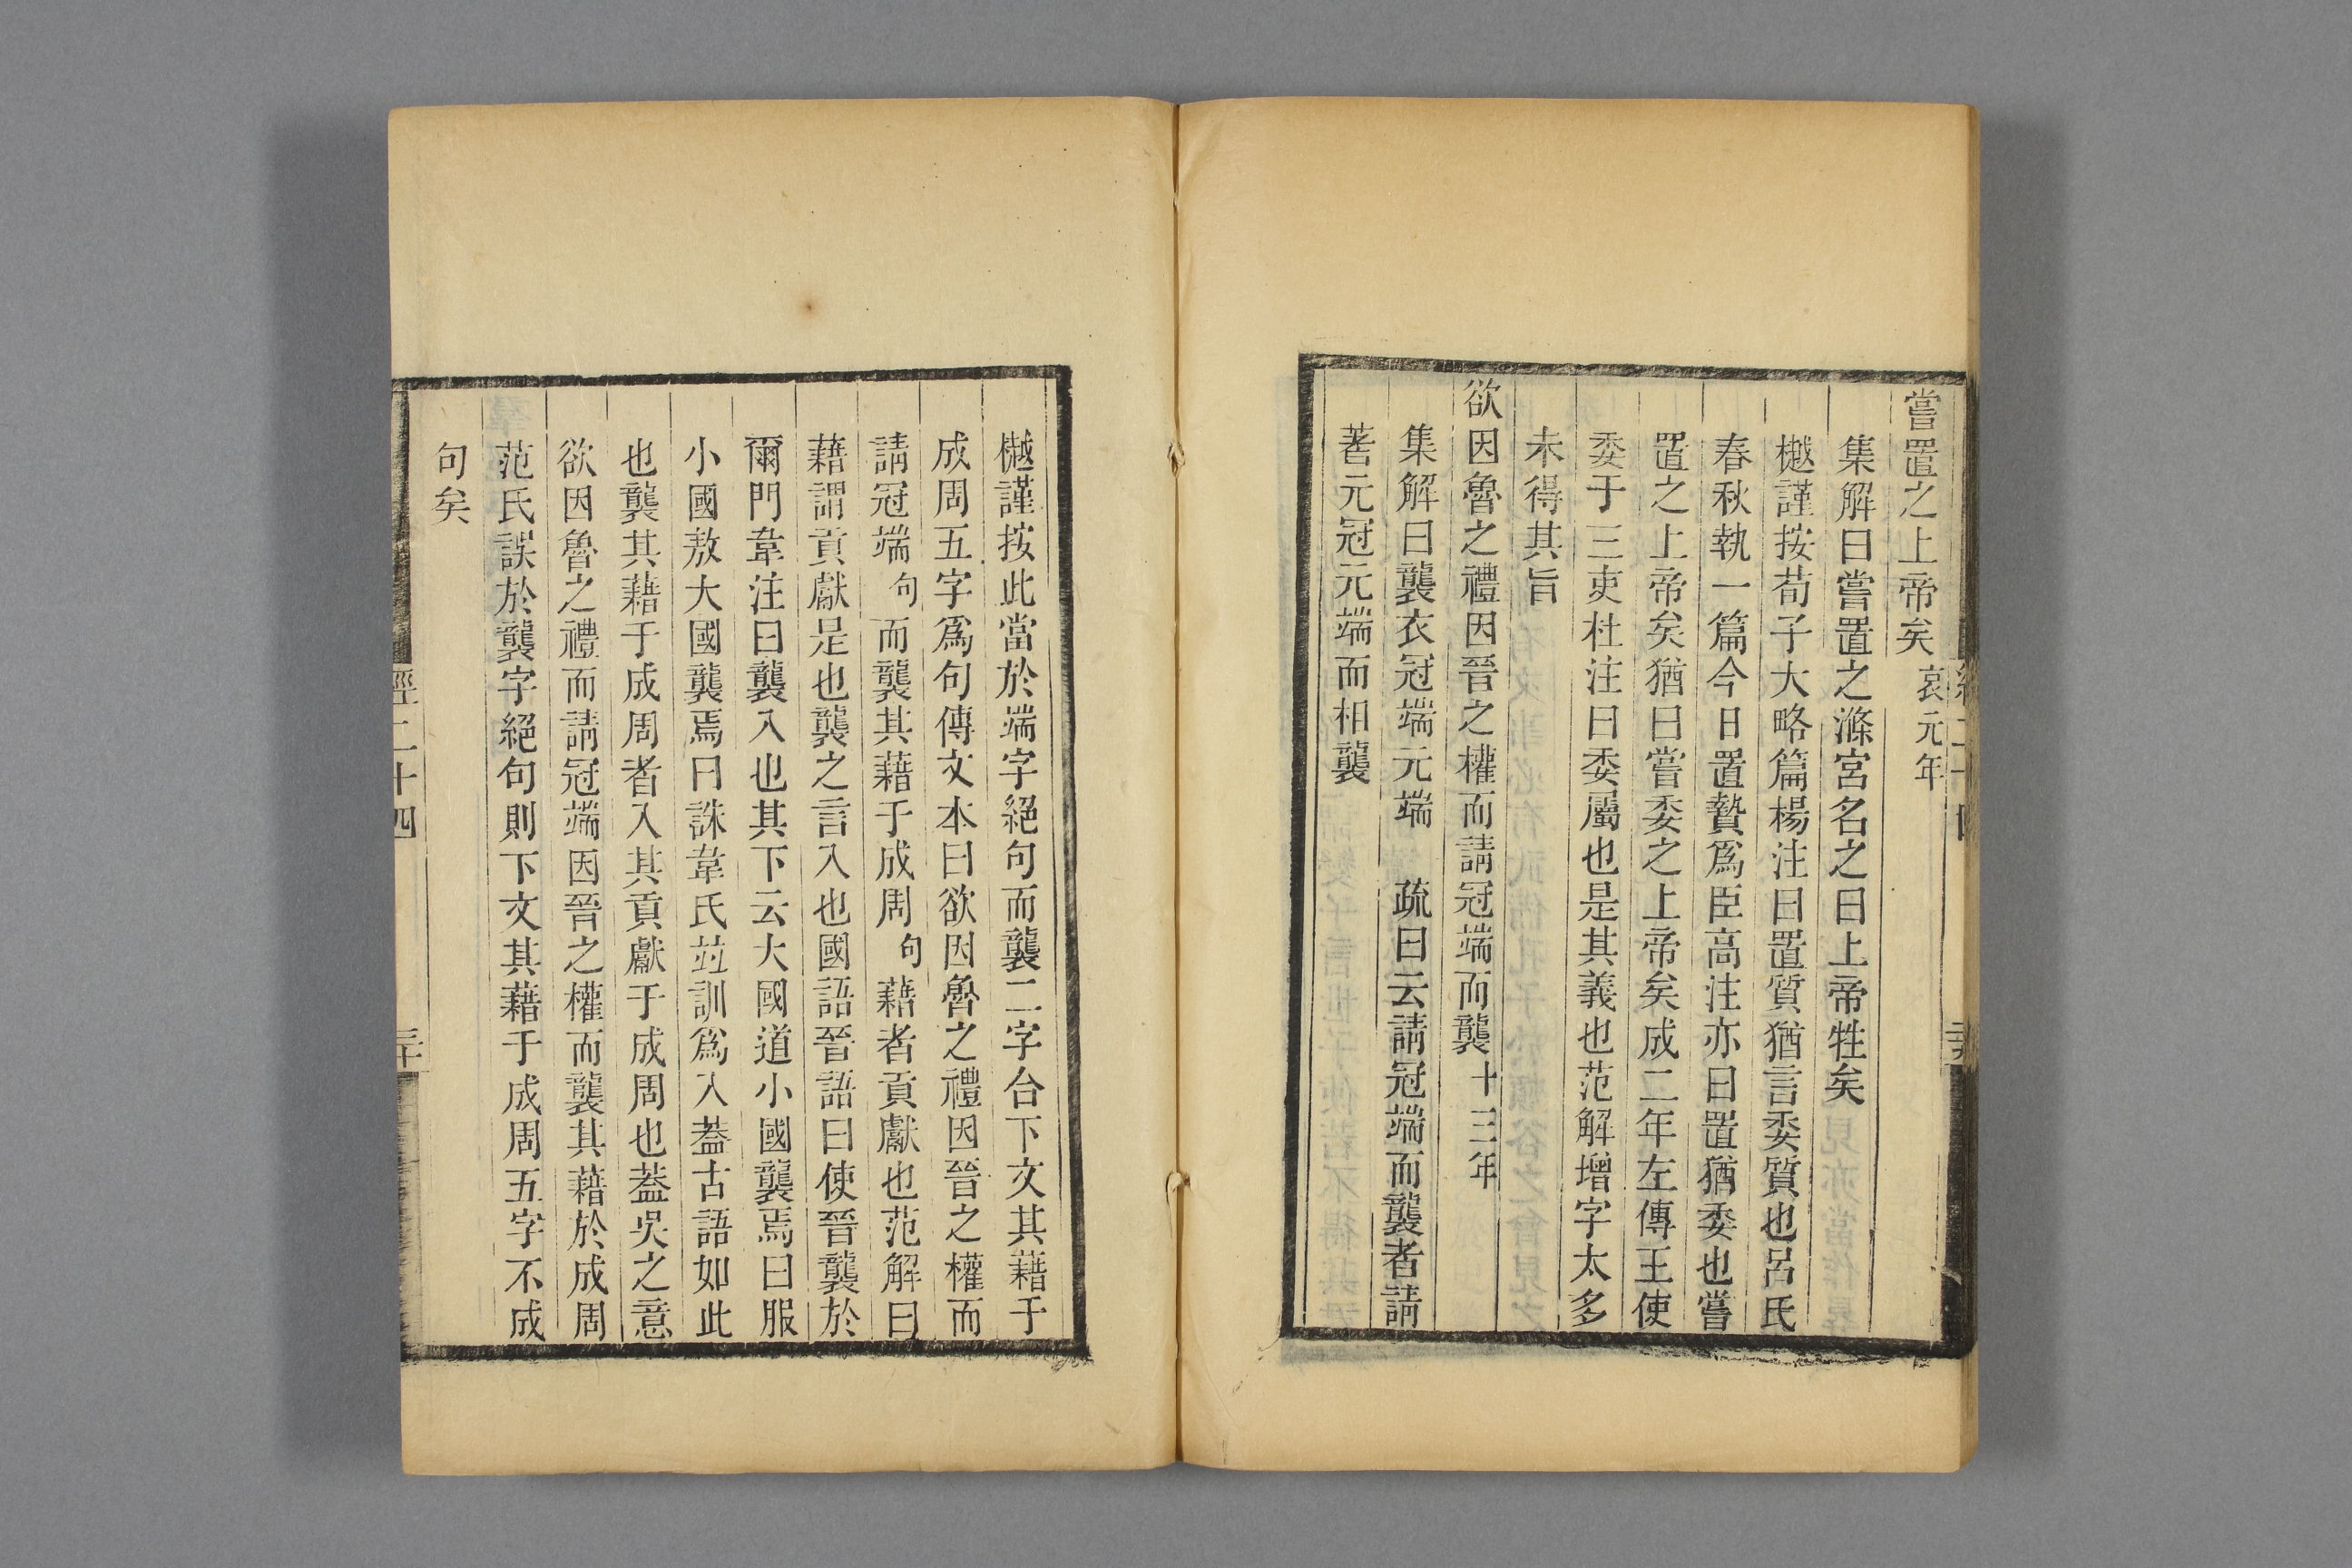 嘗置之上帝矣哀元年
集解曰嘗置之滌宮名之曰上帝牲矣
樾謹按荀子大略篇楊注曰置質猶言委質也呂氏
春秋執一篇今日置贄爲臣高注亦曰置猶委也嘗
置之上帝矣猶曰嘗委之上帝矣成二年左傳王使
委于三吏杜注曰委屬也是其義也范解增字太多
未得其旨
欲因魯之禮因晉之權而請冠端而襲十三年
集解曰襲衣冠端元端 疏曰云請冠端而襲者請
著元冠元端而相襲
樾謹按此當於端字絕句而襲二字合下文其藉于
成周五字爲句傳文本曰欲因魯之禮因晉之權而
請冠端句而襲其藉于成周句藉者貢獻也范解曰
藉謂貢獻是也襲之言入也國語晉語曰使晉襲於
爾門韋注曰襲入也其下云大國道小國襲焉曰服
小國敖大國襲焉曰誅韋氏竝訓爲入蓋古語如此
也襲其藉于成周者入其貢獻于成周也蓋吳之意
欲因魯之禮而請冠端因晉之權而襲其藉於成周
范氏誤於襲字絕句則下文其藉于成周五字不成
句矣
經二十四
三十